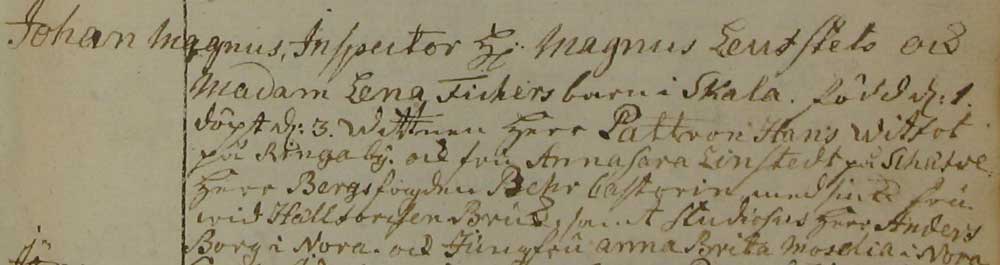 Johan Magnus, Inspector H: Magnus Leutstets och
Madam Lena Fickers barn i Skala. född d: 1.
döpt d: 3. Wittnen Herr Pattron Hans Witfot
på Ringaby. och fru Anna Sara Linstedt på
Herr Bergsfogden Behr Castorin med sin fru
wid Hällforssen Bruk, samt Studiosus Herr Anders
Borg i Nora. och Jungfru Anna Brita Moselia i Nora